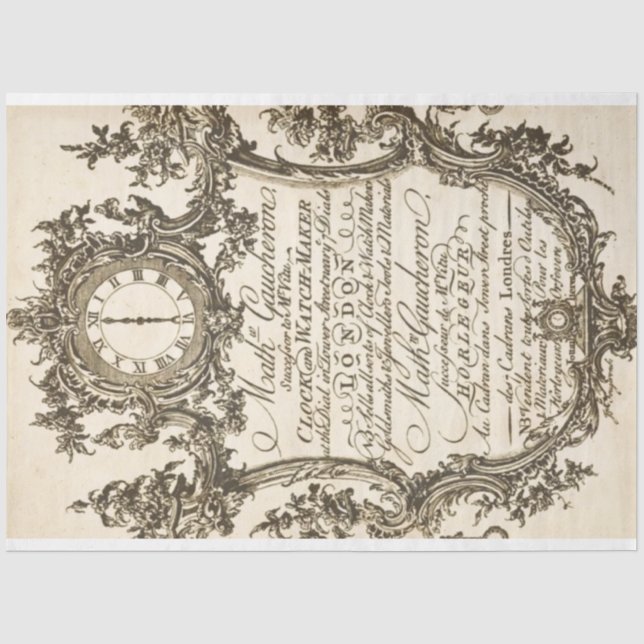 Math.w Gaucheron,
Successor to Mr Vitu
CLOCK & WATCH-MAKER
at the Dial in Tower Street near ye 7 Dials
LONDON
NB Sells all sorts of Clock & Watch Makers
Goldsmiths & Jewellers Tools & Materials
Math.w Gaucheron,
Successeur de Mr Vitu
HORLOGEUR
au Cadran dans Tower Street proche
des 7 Cadrans Londres
NB Vendent toutes sortes Outils
& Materiaux Pour les
Horlogeurs & Orfevres